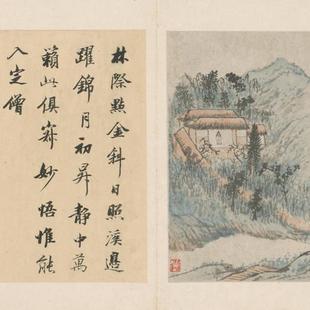 林際點金斜日照溪邊
躍錦月初昇靜中萬
籟此俱寂妙悟惟能
入定僧